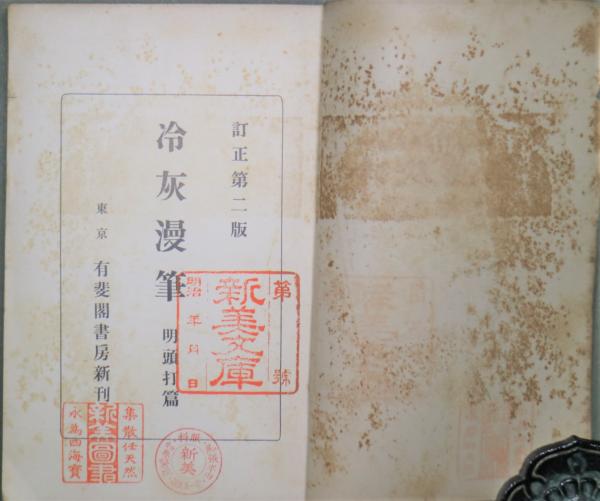 訂正第二版
冷灰漫筆
明頭打篇
東京 有斐閣書房新刊
第 號
新美文庫
明治 年 月 日
集散任天然
新美圖書
永爲四海寶
新美